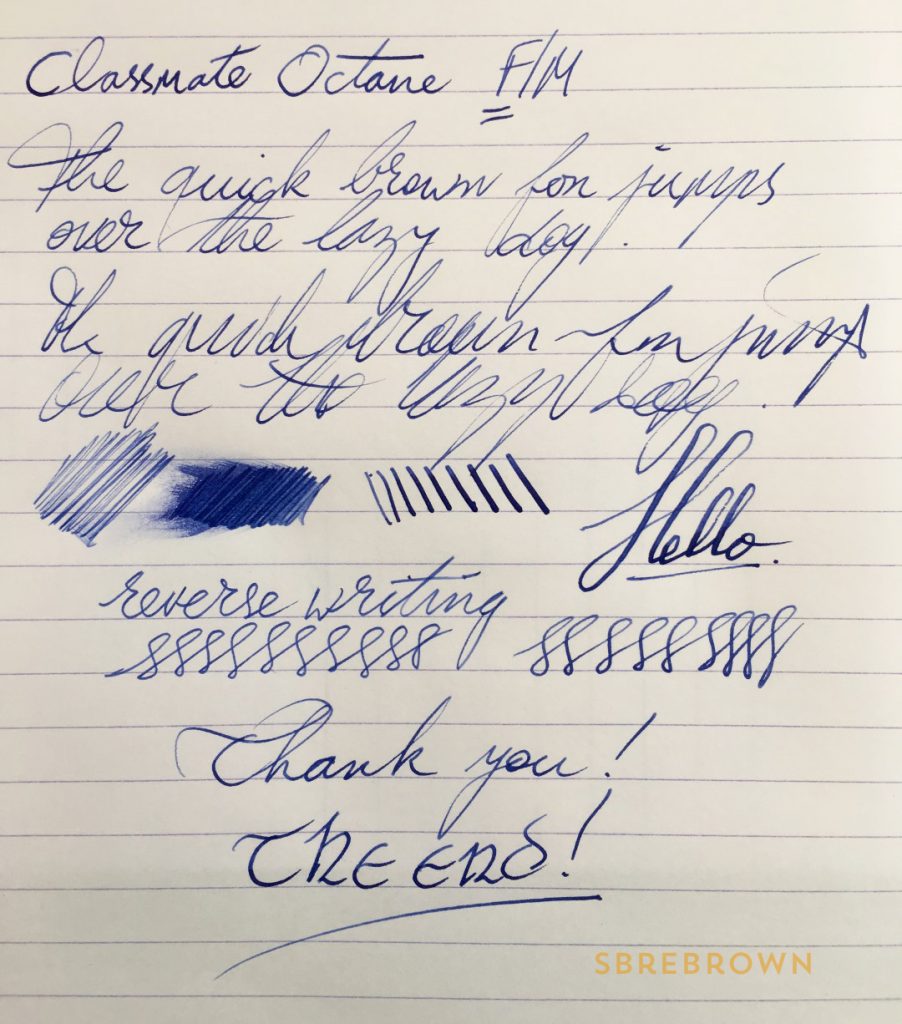 Classmate Octane F/M
The quick brown fox jumps
over the lazy dog.
The quick brown fox jumps
over the lazy dog.
Hello.
reverse writing
Thank you!
The end!
SBREBROWN